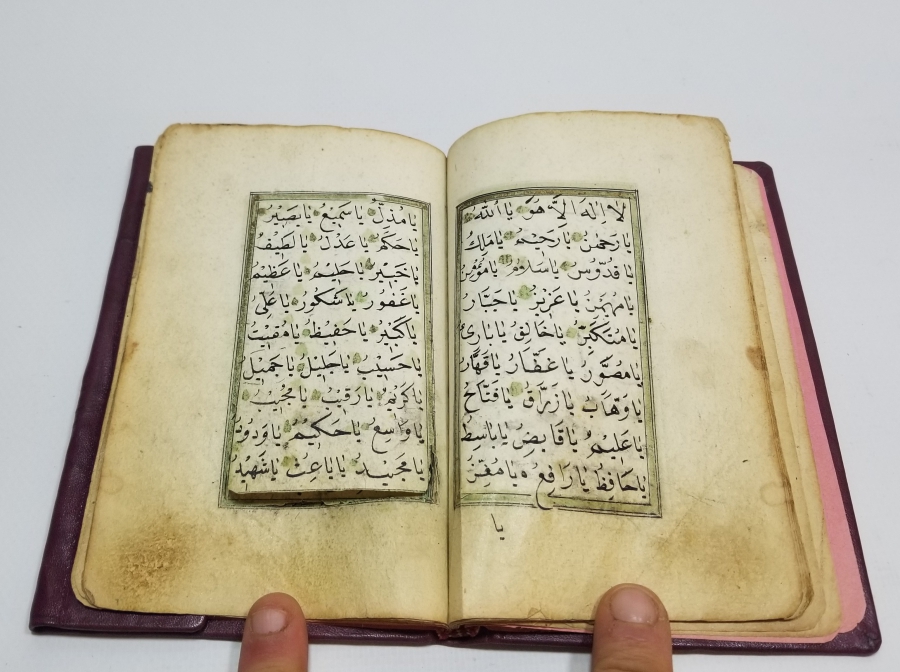 لا اله الا هو يا الله
يا رحمن يا رحيم يا ملك
يا قدوس يا سلام يا مؤمن
يا مهيمن يا عزيز يا جبار
يا متكبر يا خالق يا بارئ
يا مصور يا غفار يا قهار
يا وهاب يا رزاق يا فتاح
يا عليم يا قابض يا باسط
يا حافظ يا رافع يا معز
يا
يا مذل يا سميع يا بصير
يا حكم يا عدل يا لطيف
يا خبير يا حليم يا عظيم
يا غفور يا شكور يا على
يا كبير يا حفيظ يا مقيت
يا حسيب يا جليل يا جميل
يا كريم يا رقيب يا مجيب
يا واسع يا حكيم يا ودود
يا مجيد يا باعث يا شهيد